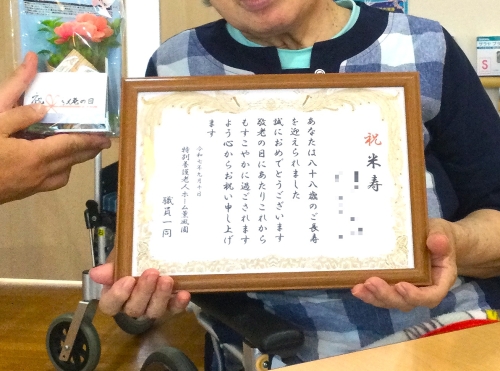 祝 米寿
あなたは八十八歳のご長寿
を迎えられました
誠におめでとうございます
敬老の日にあたりこれから
もすこやかに過ごされます
よう心からお祝い申し上げ
ます
令和七年九月十日
特別養護老人ホーム薫風園
職員一同
の日
S